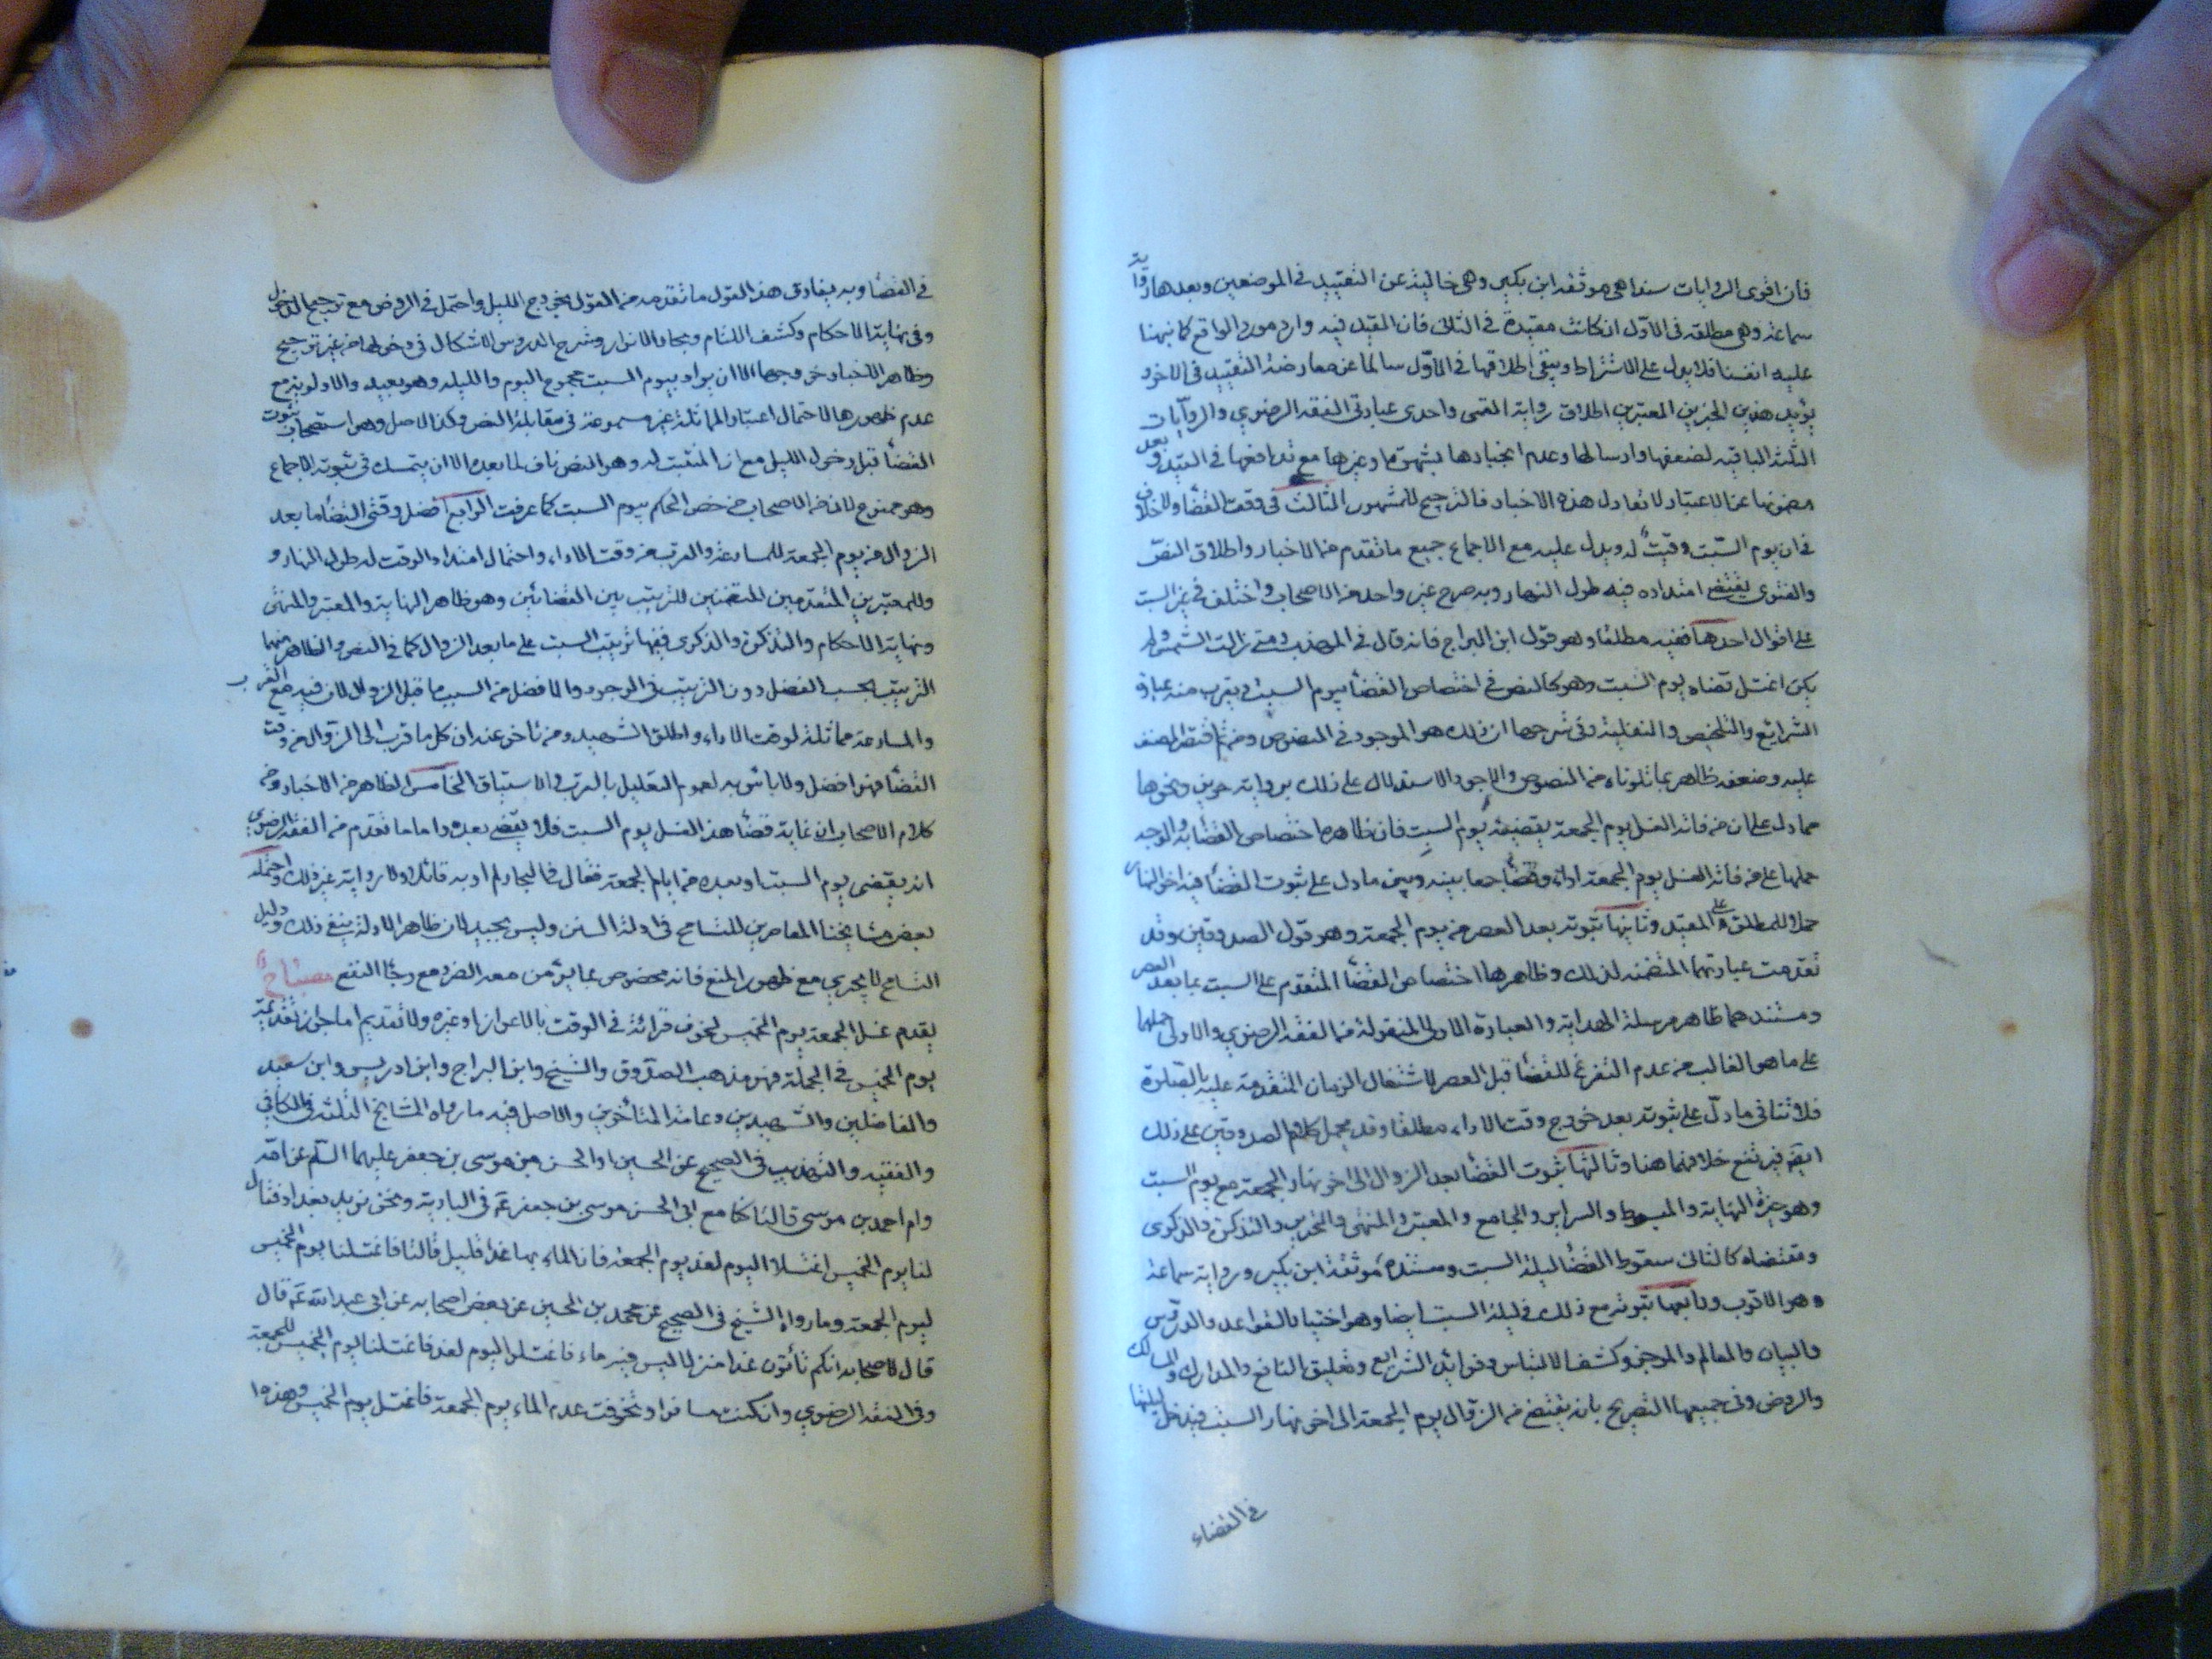 فان اقوى الروايات سندا هى موثقة ابن بكير وهى خالية عن التقييد فى الموضعين وبعدها رواية
سماعة وهى مطلقة فى الاول ان كانت مقيدة فى الثانى فان المقيد فيه وارد مورد الواقع كما نبهنا
عليه انفسنا فلا يدل على الاشتراط ويبقى اطلاقها فى الاول سالما عن معارضة التقييد فى الاخر و
يؤيد هذين الخبرين المعتبرين اطلاق رواية القمى واحدى عبارتى الفقه الرضوي والروايات
الثلثة الباقيه لضعفها وارسالها وعدم انجبارها بشهرة وغيرها مع تدافعها فى القيد وبعد
مضمونها عن الاعتبار لا تعادل هذه الاخبار فالترجيح للمشهور الثالث فى وقت القضاء ولا خلاف
فى ان يوم السبت وقت له ويدل عليه مع الاجماع جميع ما تقدم من الاخبار واطلاق النص
والفتوى يقتضى امتداده فيه طول النهار وبه صرح غير واحد من الاصحاب واختلف فى غير السبت
على اقوال احدها نفيه مطلقا وهو قول ابن البراج فانه قال فى المهذب ومتى زالت الشمس ولم
يكن اغتسل قضاه يوم السبت وهو كالنص فى اختصاص القضاء بيوم السبت ويقرب منه عبارة
الشرايع والتلخيص والنفلية وفى شرحها ان ذلك هو الموجود فى النصوص ومن ثم اقتصر المصنف
عليه وضعفه ظاهر بما تلوناه من النصوص والاجود الاستدلال على ذلك برواية حريز ونحوها
مما دل على ان من فاته الغسل يوم الجمعة يقضيه يوم السبت فان ظاهره اختصاص القضاء به والوجه
حملها على من فاته الغسل يوم الجمعة اداء وقضاء جمعا بينه وبين ما دل على ثبوت القضاء فيه اخر النهار
حملا للمطلق على المقيد وثانيها ثبوته بعد العصر من يوم الجمعة وهو قول الصدوقين وقد
تقدمت عبارتهما المتضمنة لذلك وظاهرها اختصاص القضاء المتقدم على السبت بما بعد العصر
ومستندهما ظاهر مرسلة الهداية والعبارة الاولى المنقولة من الفقه الرضوي والاولى حملهما
على ما هو الغالب من عدم التفرغ للقضاء قبل العصر لاشتغال الزمان المتقدمة عليه بالصلوة
فلا تنافى ما دل على ثبوته بعد خروج وقت الاداء مطلقا وقد يحمل كلام الصدوقين على ذلك
ايضا فيرتفع خلافهما هنا وثالثها ثبوت القضاء بعد الزوال الى اخر نهار الجمعة مع يوم السبت
وهو خيرة النهاية والمبسوط والسراير والجامع والمعتبر والمنتهى والتحرير والتذكرة والذكرى
ومقتضاه كالثانى سقوط القضاء ليلة السبت ومستنده موثقة ابن بكير ورواية سماعة
وهو الاقرب ورابعها ثبوته مع ذلك فى ليلة السبت ايضا وهو اختيار القواعد والدروس
والبيان والمعالم والموجز وكشف الالتباس وفوائد الشرايع وتعليق النافع والمدارك والمسالك
والروض وفى جميعها التصريح بانه يقتضى من الزوال يوم الجمعة الى اخر نهار السبت فيدخل ليلتها
فى القضاء
فى القضاء وبه يفارق هذا القول ما تقدمه من القول بخروج الليل واحتمل فى الروض مع ترجيح الدخول
وفى نهاية الاحكام وكشف اللثام وبحار الانوار وشرح الدروس الاشكال فى دخولها من غير ترجيح
وظاهر الاخبار خروجها الا ان يراد بيوم السبت مجموع اليوم والليله وهو بعيد والاولوية مع
عدم ظهورها لاحتمال اعتبار المماثلة غير مسموعة فى مقابلة النص وكذا الاصل وهو استصحاب ثبوت
القضاء قبل دخول الليل مع ان المثبت له وهو النص ناف لما بعده الا ان يتمسك فى ثبوته بالاجماع
وهو ممنوع لان من الاصحاب من خص الحكم بيوم السبت كما عرفت الرابع افضل وقتى القضاء ما بعد
الزوال من يوم الجمعة للمسارعة والقرب من وقت الاداء واحتمال امتداد الوقت له طول النهار و
وللمعتبرين المتقدمين المتضمنين للترتيب بين القضائين وهو ظاهر النهاية والمعتبر والمنتهى
ونهاية الاحكام والتذكرة والذكرى ففيها ترتيب السبت على ما بعد الزوال كما فى النص والظاهر منهما
الترتيب بحسب الفضل دون الترتيب فى الوجود والافضل من السبت ما قبل الزوال لان فيه مع القرب
والمسارعة مماثلة لوقت الاداء واطلق الشهيد ومن تاخر عنه ان كل ما قرب الى الزوال من وقت
القضاء فهو افضل ولا باس به لعموم التعليل بالقرب والاستباق الخامس الظاهر من الاخبار ومن
كلام الاصحاب ان غاية قضاء هذا الغسل يوم السبت فلا يقضى بعده واما ما تقدم من الفقه الرضوي
انه يقضى يوم السبت او بعده من ايام الجمعة فقال فى البحار لم ار به قائلا ولا رواية غير ذلك واحتمله
بعض مشايخنا المعاصرين للتسامح فى ادلة السنن وليس بجيد لان ظاهر الادلة ينفى ذلك ودليل
التسامح لا يجري مع ظهور المنع فانه مخصوص بما يؤمن معه الضرر مع رجاء النفع مصباح
يقدم غسل الجمعة يوم الخميس لخوف فواته فى الوقت بالاعواز او غيره ولا تقديم اما جواز تقديمه
يوم الخميس فى الجملة فهو مذهب الصدوق والشيخ وابن البراج وابن ادريس وابن سعيد
والفاضلين والشهيدين وعامة المتاخرين والاصل فيه ما رواه المشايخ الثلثة فى الكافى
والفقيه والتهذيب فى الصحيح عن الحسين او الحسن بن موسى بن جعفر عليهما السلم عن امه
وام احمد بن موسى قالتا كنا مع ابى الحسن موسى بن جعفر ع فى البادية ونحن نريد بغداد فقال
لنا يوم الخميس اغتسلا اليوم لغد يوم الجمعة فان الماء بها غدا قليل قالتا فاغتسلنا يوم الخميس
ليوم الجمعة وما رواه الشيخ فى الصحيح عن محمد بن الحسين عن بعض اصحابه عن ابى عبد الله ع قال
قال لاصحابه انكم تأتون غدا منزلا ليس فيه ماء فاغتسلوا اليوم لغد فاغتسلنا يوم الخميس للجمعة
وفى الفقه الرضوي وان كنت مسافرا وتخوفت عدم الماء يوم الجمعة فاغتسل يوم الخميس وهذه ا